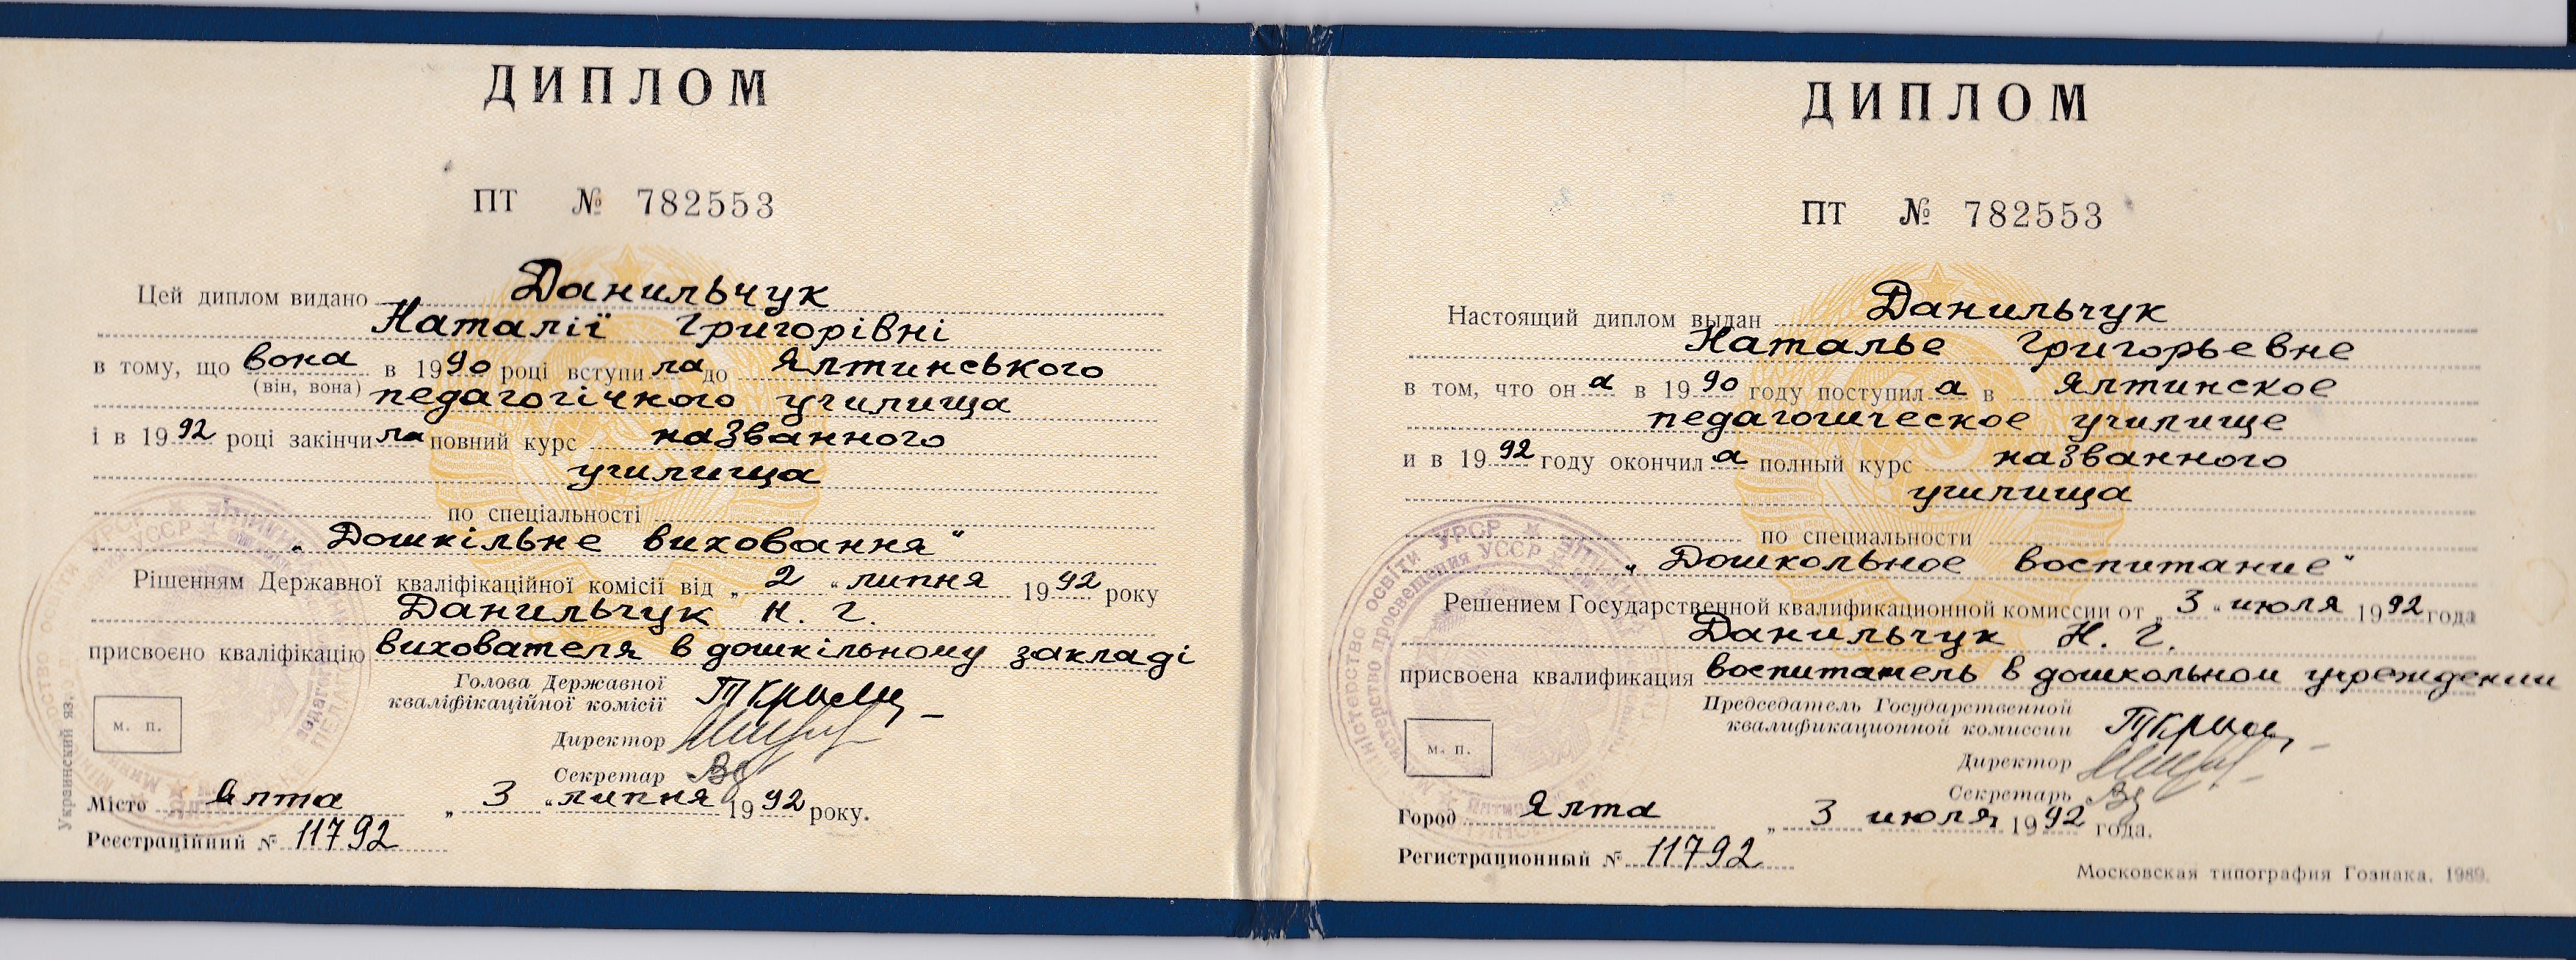 ДИПЛОМ
ПТ № 782553
Цей диплом видано Данильчук
Наталії Григорівні
в тому, що вона в 1990 році вступила до Ялтинського
(він, вона) педагогічного училища
і в 1992 році закінчила повний курс названного
училища
по спеціальності
„Дошкільне виховання“
Рішенням Державної кваліфікаційної комісії від „2“ липня 1992 року
Данильчук Н. Г.
присвоєно кваліфікацію вихователя в дошкільному закладі
Голова Державної
кваліфікаційної комісії
Директор
Секретар
м. п.
Місто Ялта „3“ липня 1992 року.
Реєстраційний № 11792
Украинский яз.
ДИПЛОМ
ПТ № 782553
Настоящий диплом выдан Данильчук
Наталье Григорьевне
в том, что она в 1990 году поступила в Ялтинское
педагогическое училище
и в 1992 году окончила полный курс названного
училища
по специальности
„Дошкольное воспитание“
Решением Государственной квалификационной комиссии от „3“ июля 1992 года
Данильчук Н. Г.
присвоена квалификация воспитатель в дошкольном учреждении
Председатель Государственной
квалификационной комиссии
Директор
Секретарь
м. п.
Город Ялта „3 июля 1992 года.
Регистрационный № 11792
Московская типография Гознака. 1989.